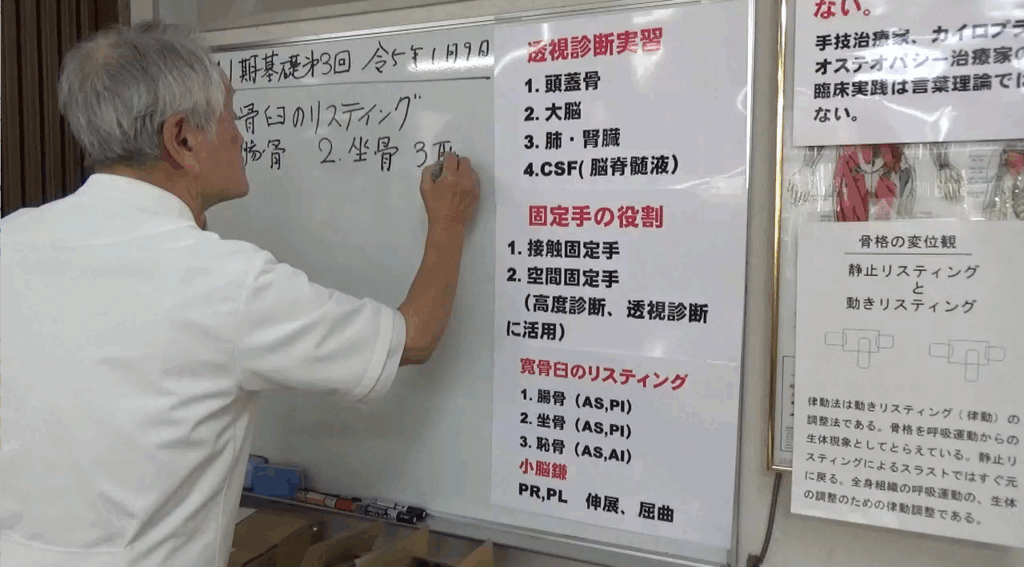 期基礎第3回 令5年1月9日
骨臼のリスティング
腸骨 2.坐骨 3
透視診断実習
1. 頭蓋骨
2. 大脳
3. 肺・腎臓
4.CSF( 脳脊髄液)
固定手の役割
1. 接触固定手
2. 空間固定手
(高度診断、透視診断
に活用)
寛骨臼のリスティング
1. 腸骨(AS,PI)
2. 坐骨(AS,PI)
3. 恥骨(AS,AI)
小脳鎌
PR,PL 伸展、屈曲
ない。
手技治療家、カイロプラ
オステオパシー治療家の
臨床実践は言葉理論では
ない。
骨格の変位観
静止リスティング
と
動きリスティング
律動法は動きリスティング(律動)の
調整法である。骨格を呼吸運動からの
生体現象としてとらえている。静止リ
スティングによるスラストではすぐ元
に戻る。全身組織の呼吸運動の、生体
の調整のための律動調整である。